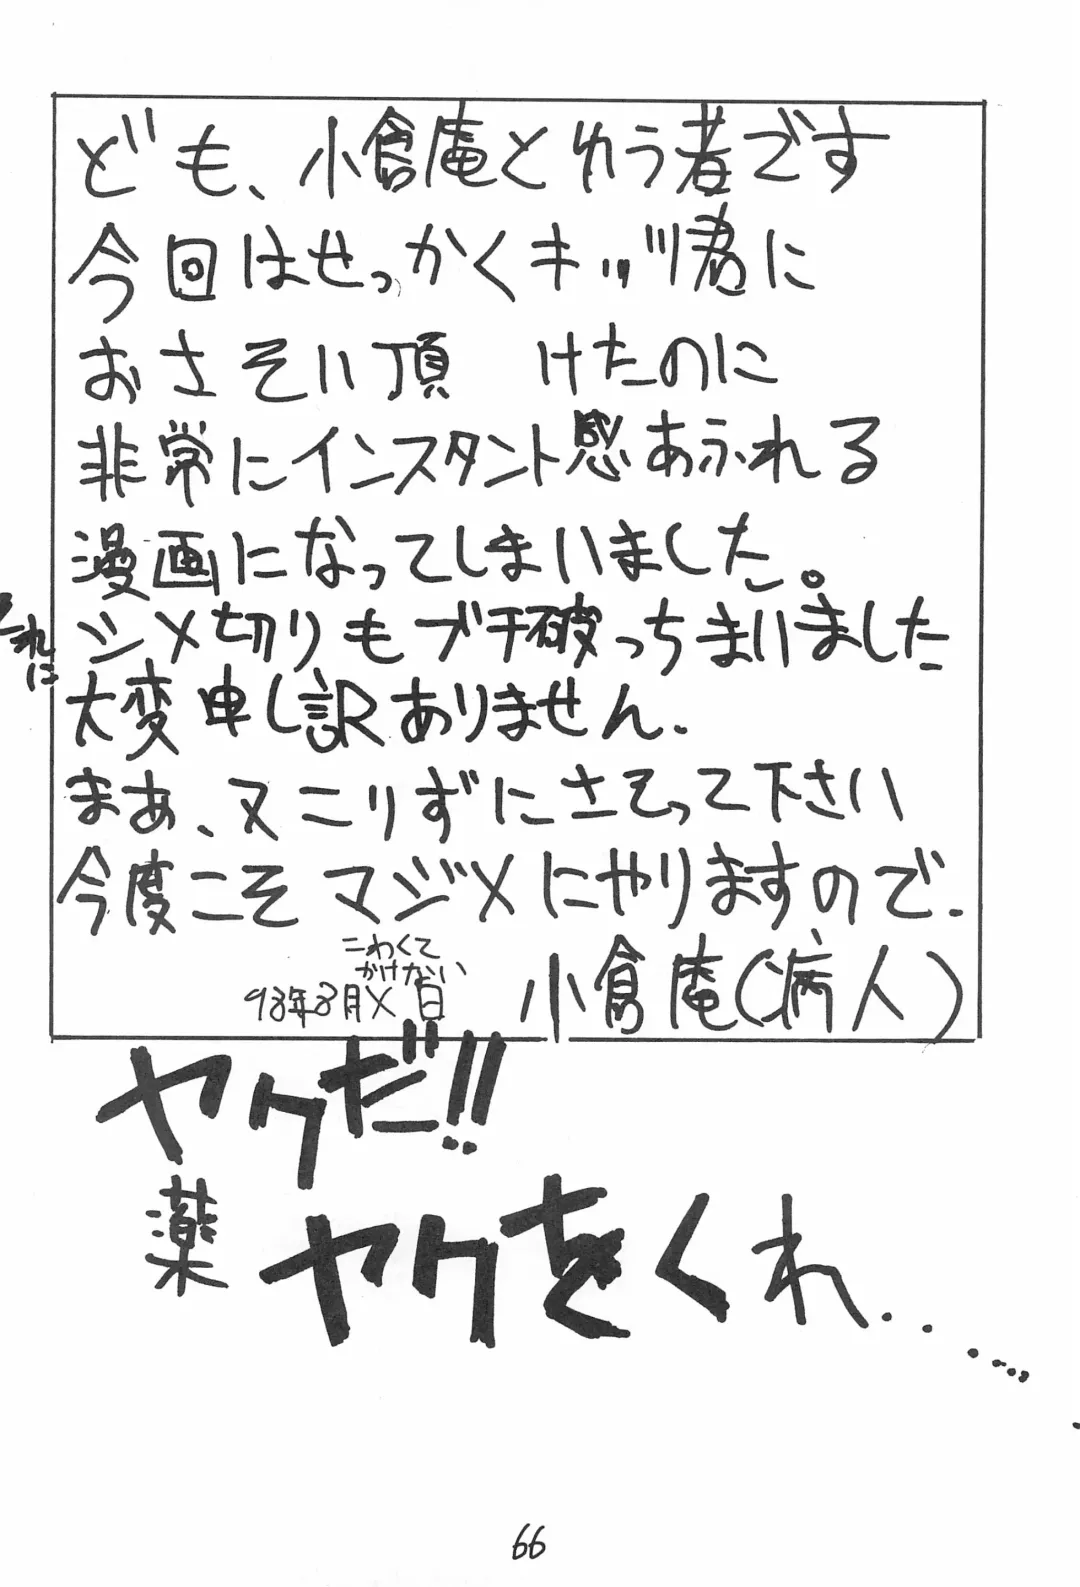 ども、小倉庵とゆう者です
今回はせっかくキッヅ君に
おさそい頂 けたのに
非常にインスタント感あふれる
漫画になってしまいました。
それに
シメ切りもブチ破っちまいました
大変申し訳ありません.
まあ、又こりずにさそって下さい
今度こそマジメにやりますので.
こわくて
かけない
93年8月×日
小倉庵(病人)
ヤクだ!!
薬
ヤクをくれ.......
66